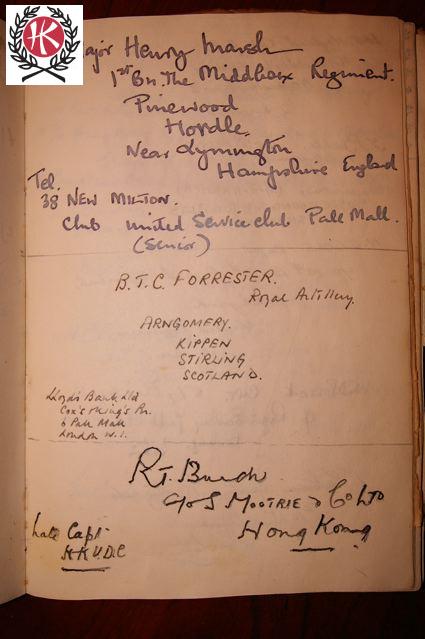 HK
Major Henry Marsh
1st Bn. The Middlesex Regiment.
Pinewood
Hordle.
Near Lymington
Hampshire England
Tel.
38 NEW MILTON.
Club United Service club Pall Mall.
(Senior)
B.T.C. FORRESTER.
Royal Artillery.
ARNGOMERY.
KIPPEN
STIRLING
SCOTLAND.
Lloyds Bank Ltd
Cox's & King's Br.
6 Pall Mall
London W.1.
R.T. Burch
c/o S MOUTRIE & Co LTD
Hong Kong
Late Capt.
HKVDC